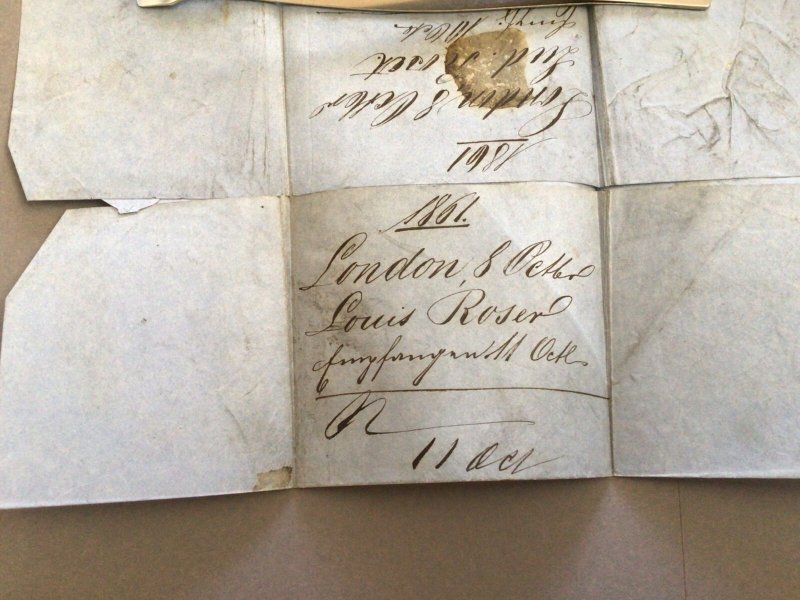 1861.
London, 8 Octbr
Louis Roser
Empfangen 11 Octb.
11 Oct
1861
London, 8 Octbr
Lud.
10 Octb